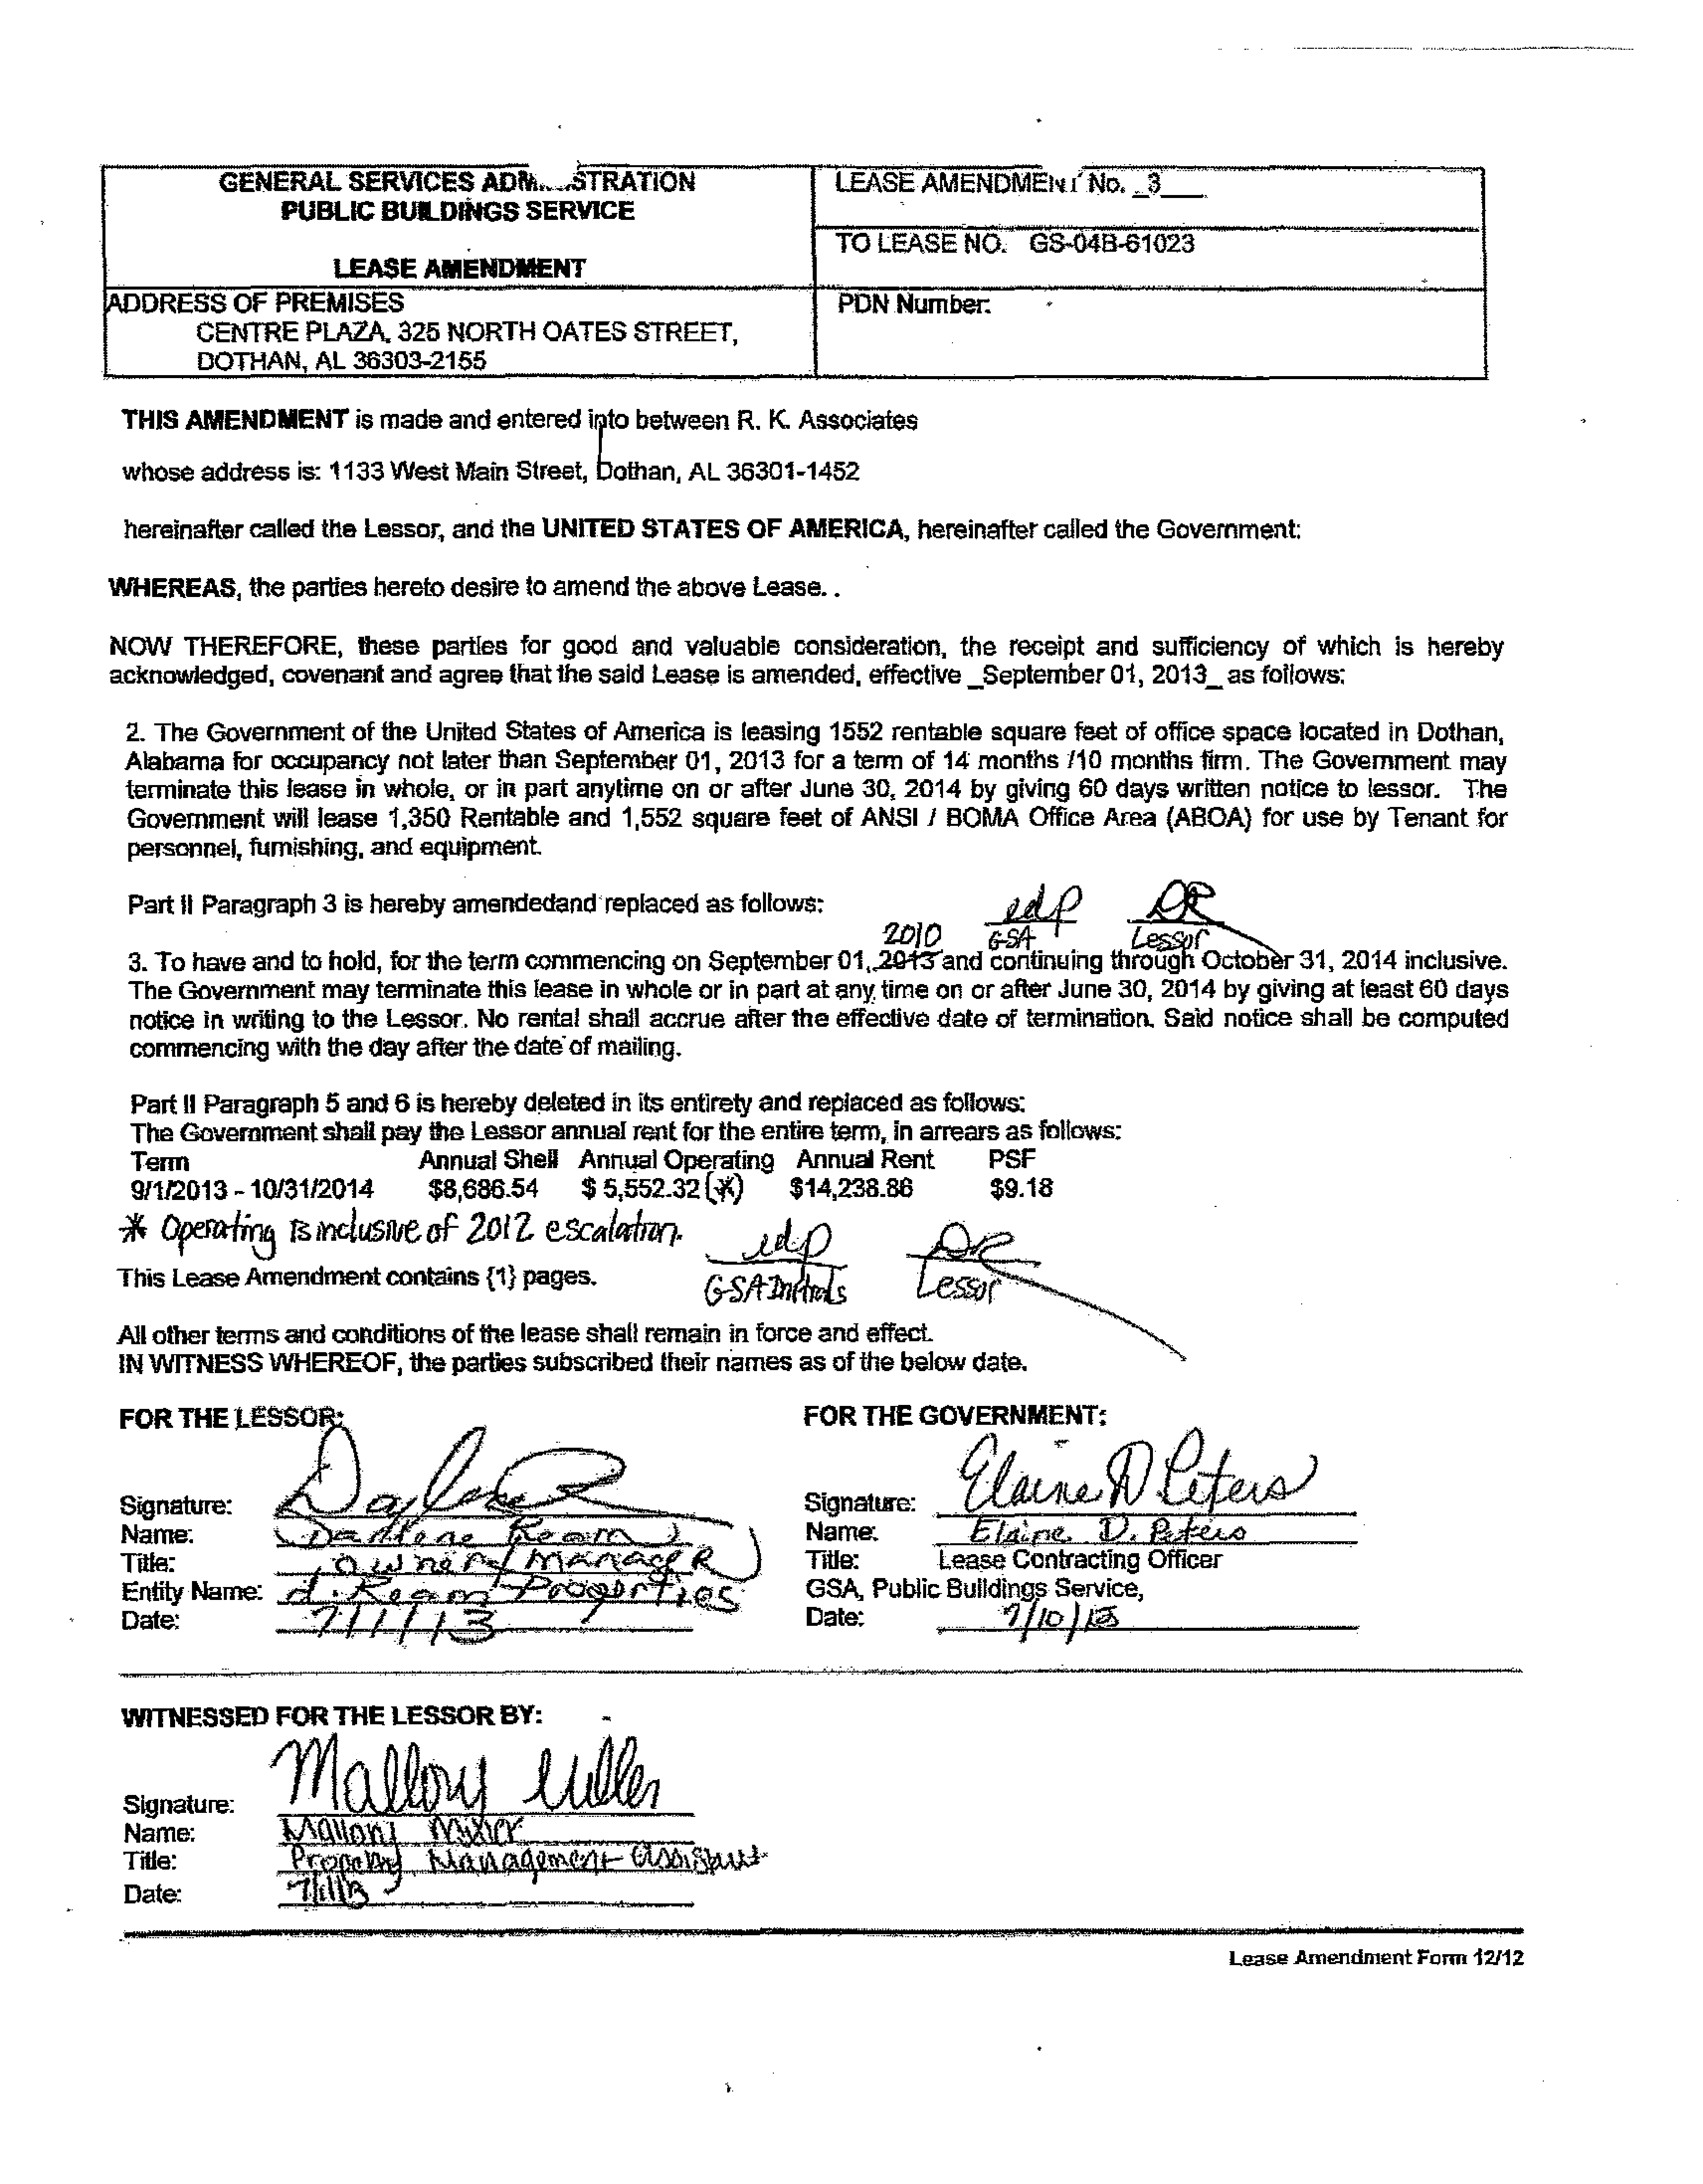 GENERAL SERVICES ADM...STRATION
PUBLIC BUILDINGS SERVICE
LEASE AMENDMENT
LEASE AMENDMENT No. _3___
TO LEASE NO. GS-04B-61023
ADDRESS OF PREMISES
CENTRE PLAZA, 325 NORTH OATES STREET,
DOTHAN, AL 36303-2155
PDN Number:
THIS AMENDMENT is made and entered into between R. K. Associates
whose address is: 1133 West Main Street, Dothan, AL 36301-1452
hereinafter called the Lessor, and the UNITED STATES OF AMERICA, hereinafter called the Government:
WHEREAS, the parties hereto desire to amend the above Lease. .
NOW THEREFORE, these parties for good and valuable consideration, the receipt and sufficiency of which is hereby
acknowledged, covenant and agree that the said Lease is amended, effective _September 01, 2013_ as follows:
2. The Government of the United States of America is leasing 1552 rentable square feet of office space located in Dothan,
Alabama for occupancy not later than September 01, 2013 for a term of 14 months /10 months firm. The Government may
terminate this lease in whole, or in part anytime on or after June 30, 2014 by giving 60 days written notice to lessor. The
Government will lease 1,350 Rentable and 1,552 square feet of ANSI / BOMA Office Area (ABOA) for use by Tenant for
personnel, furnishing, and equipment.
Part II Paragraph 3 is hereby amendedand replaced as follows:
edp DR
2010 GSA Lessor
3. To have and to hold, for the term commencing on September 01, 2013 and continuing through October 31, 2014 inclusive.
The Government may terminate this lease in whole or in part at any time on or after June 30, 2014 by giving at least 60 days
notice in writing to the Lessor. No rental shall accrue after the effective date of termination. Said notice shall be computed
commencing with the day after the date of mailing.
Part II Paragraph 5 and 6 is hereby deleted in its entirety and replaced as follows:
The Government shall pay the Lessor annual rent for the entire term, in arrears as follows:
Term Annual Shell Annual Operating Annual Rent PSF
9/1/2013 - 10/31/2014 $8,686.54 $ 5,552.32 (*) $14,238.86 $9.18
* Operating is inclusive of 2012 escalation.
edp DR
This Lease Amendment contains {1} pages.
GSA Initials Lessor
All other terms and conditions of the lease shall remain in force and effect.
IN WITNESS WHEREOF, the parties subscribed their names as of the below date.
FOR THE LESSOR:
Signature:
Name: Darlene Ream
Title: owner/manager
Entity Name: d. Ream Properties
Date: 7/1/13
FOR THE GOVERNMENT:
Signature: Elaine D Peters
Name: Elaine D. Peters
Title: Lease Contracting Officer
GSA, Public Buildings Service,
Date: 7/10/13
WITNESSED FOR THE LESSOR BY:
Signature: Mallory
Name: Mallory
Title: Property Management assistant
Date: 7/1/13
Lease Amendment Form 12/12